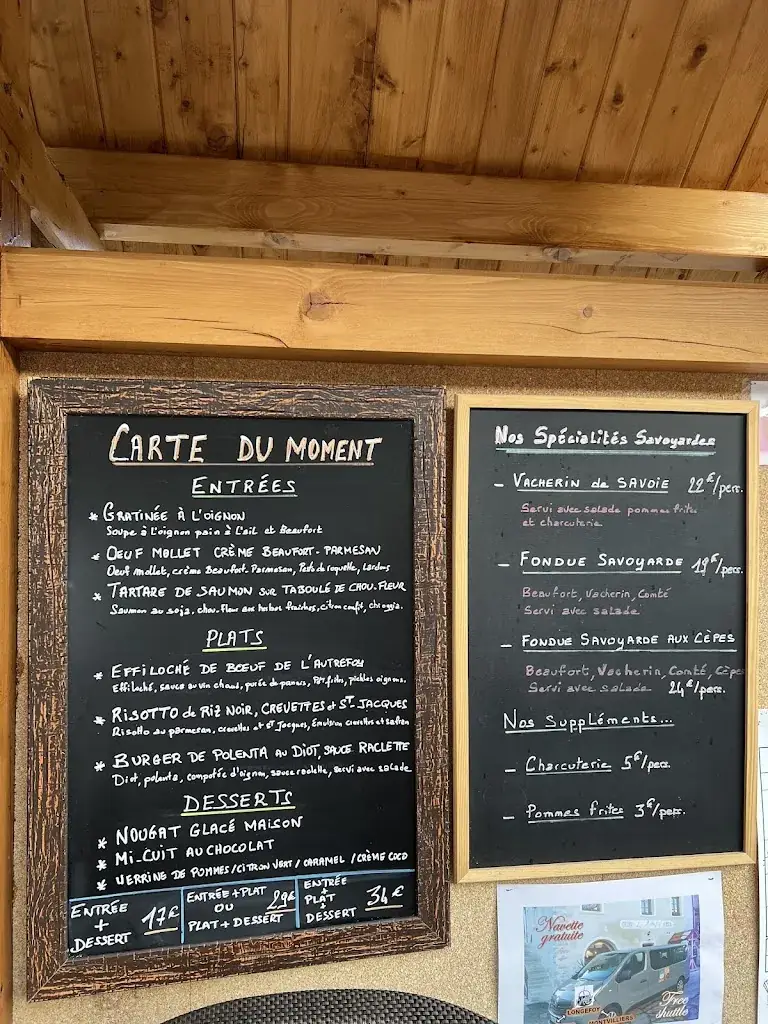 CARTE DU MOMENT
ENTRÉES
* GRATINÉE À L'OIGNON
Soupe à l'oignon pain à l'ail et Beaufort
* OEUF MOLLET CRÈME BEAUFORT-PARMESAN
Oeuf mollet, crème Beaufort-Parmesan, Pesto de roquette, Lardons
* TARTARE DE SAUMON SUR TABOULÉ DE CHOU-FLEUR
Saumon au soja, chou-fleur aux herbes fraîches, citron confit, chioggia.
PLATS
* EFFILOCHÉ DE BŒUF DE L'AUTREFOY
Effiloché, sauce au vin chaud, purée de panais, pickles oignons.
* RISOTTO de RIZ NOIR, CREVETTES et ST JACQUES
Risotto au parmesan, crevettes et ST Jacques, Emulsion crevettes et safran
* BURGER DE POLENTA AU DIOT, SAUCE RACLETTE
Diot, polenta, compotée d'oignon, sauce raclette, servi avec salade
DESSERTS
* NOUGAT GLACÉ MAISON
* MI-CUIT AU CHOCOLAT
* VERRINE DE POMMES/CITRON VERT/CARAMEL/CRÈME COCO
ENTRÉE
+
DESSERT
17€
ENTRÉE+PLAT
OU
PLAT+DESSERT
29€
ENTRÉE
+
PLAT
+
DESSERT
34€
Nos Spécialités Savoyardes
- VACHERIN de SAVOIE 22€/pers.
Servi avec salade pommes frites
et charcuterie
- FONDUE SAVOYARDE 19€/pers.
Beaufort, Vacherin, Comté
Servi avec salade
- FONDUE SAVOYARDE AUX CÈPES
Beaufort, Vacherin, Comté, Cèpes
Servi avec salade 24€/pers.
Nos Suppléments...
- Charcuterie 5€/pers.
- Pommes frites 3€/pers.
Navette
gratuite
LONGEFOY
MONTVILLIERS
Free
shuttle